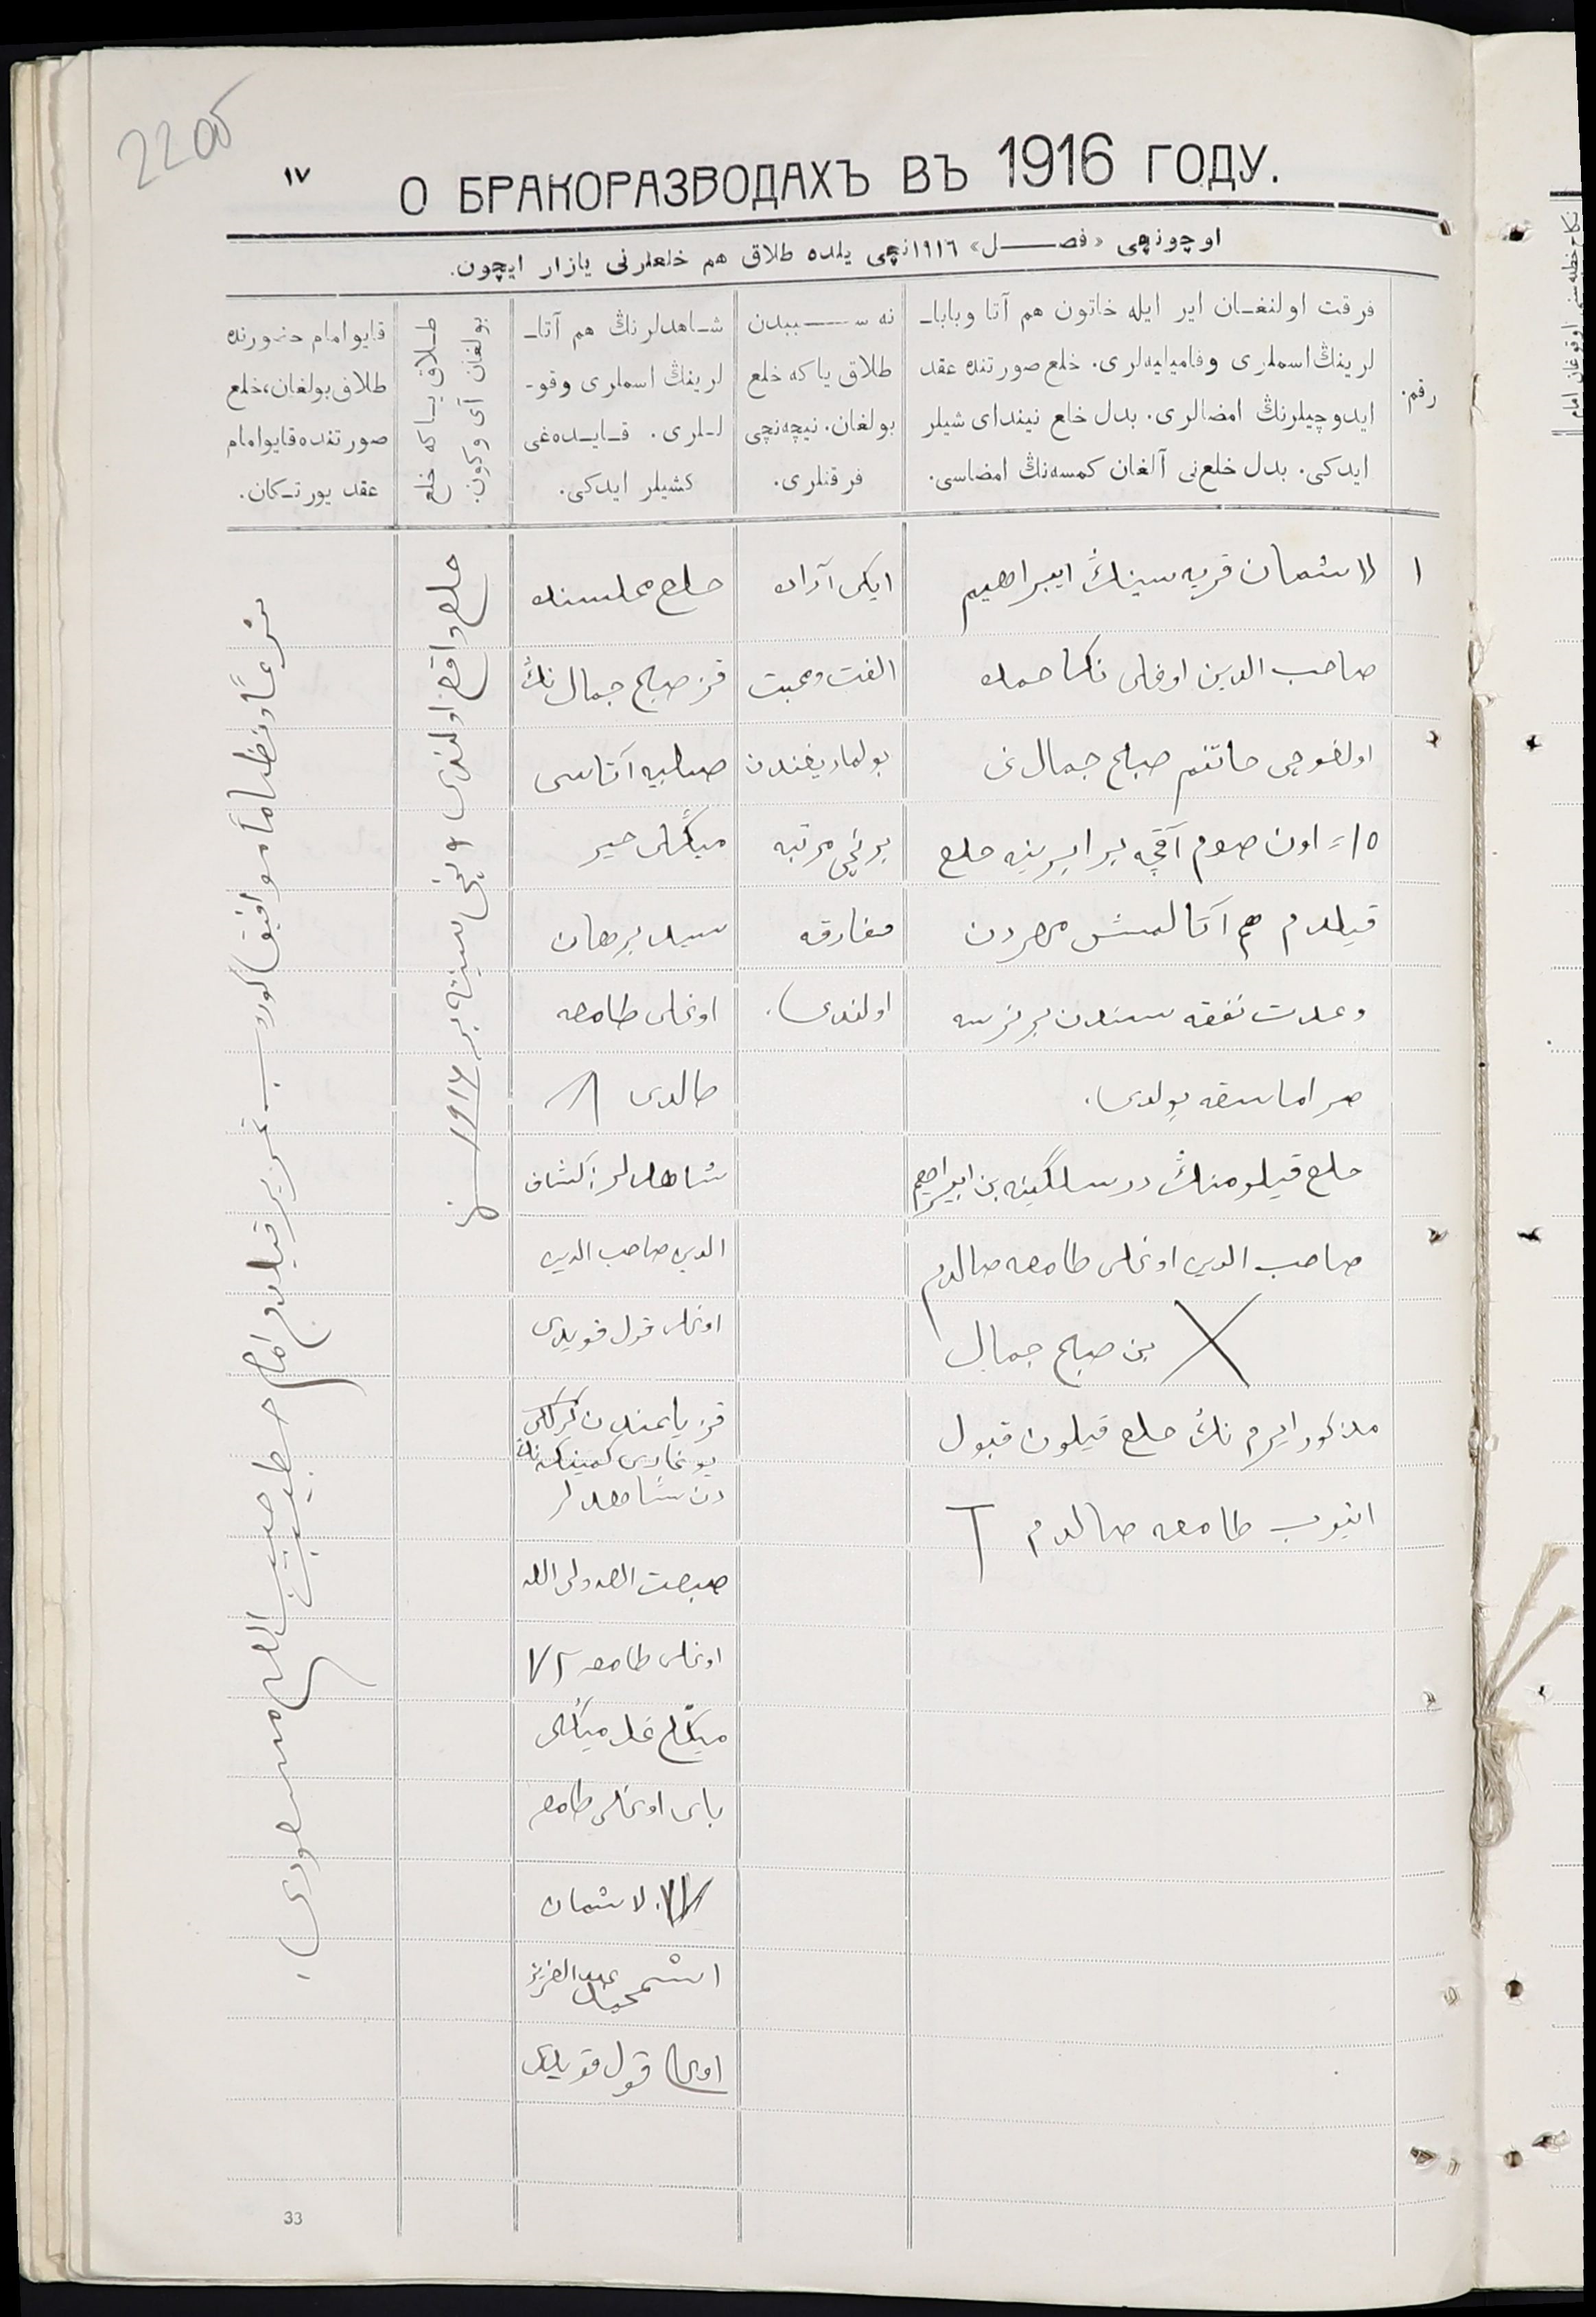 2200
١٧
О БРАКОРАЗВОДАХЪ ВЪ 1916 ГОДУ.
اوچونچی «فصل» ١٩١٦نچی یلده طلاق هم خلعلرنی یازار ایچون.
رقم.
فرقت اولنغان ایر ایله خاتون هم آتا وبابا-
لرینڭ اسملری وفامیلیه‌لری. خلع صورتنده عقد
ایدوچیلرنڭ امضالری. بدل خلع نیندای شیلر
ایدکی. بدل خلعنی آلغان کمسه‌نڭ امضاسی.
نه سببدن
طلاق یاکه خلع
بولغان. نیچه‌نچی
فرقتلری.
شاهدلرنڭ هم آتا-
لرینڭ اسملری وقو-
للری. قایده‌غی
کشیلر ایدکی.
طلاق یاکه خلع
بولغان آی وکون.
قایو امام حضورنده
طلاق بولغان، خلع
صورتنده قایو امام
عقد یورتکان.
١
لاشمان قریه سینڭ ایبراهیم
صاحب الدین اوغلی
اولغوچی خاتنم صباح جمال نی
اون صوم آقچه برابرینه خلع
قیلدم هم آتالمش مهردن
وعدت نفقه سندن بر نرسه
بولدی.
خلع قیلومنڭ درسلگینه بن ایبراهیم
صاحب الدین اوغلی طامغه صالدم
بن صباح جمال
مذکور ایرم نڭ خلع قیلون قبول
ایتیوب طامغه صالدم
ایکی آراده
الفت ومحبت
بولمادیغندن
برنچی مرتبه
مفارقه
اولندی.
خلع مجلسنده
قز صباح جمال نڭ
صلبیه آتاسی
سید برهان
اوغلی طامغه
صالدی
شاهدلر: کشاف
الدین صاحب الدین
اوغلی قول قویدی
قز یاغندن
دن شاهدلر
صبغت الله ولی الله
اوغلی طامغه
بای اوغلی طامغه
لاشمان
عبدالعزیز
اوغلی قول قویدی
خلع واقع اولندی
١٩١٦
شرعًا ونظامًا موافق کوروب تحریر قیلدم امام خطیب حبیب الله مسعودی.
33